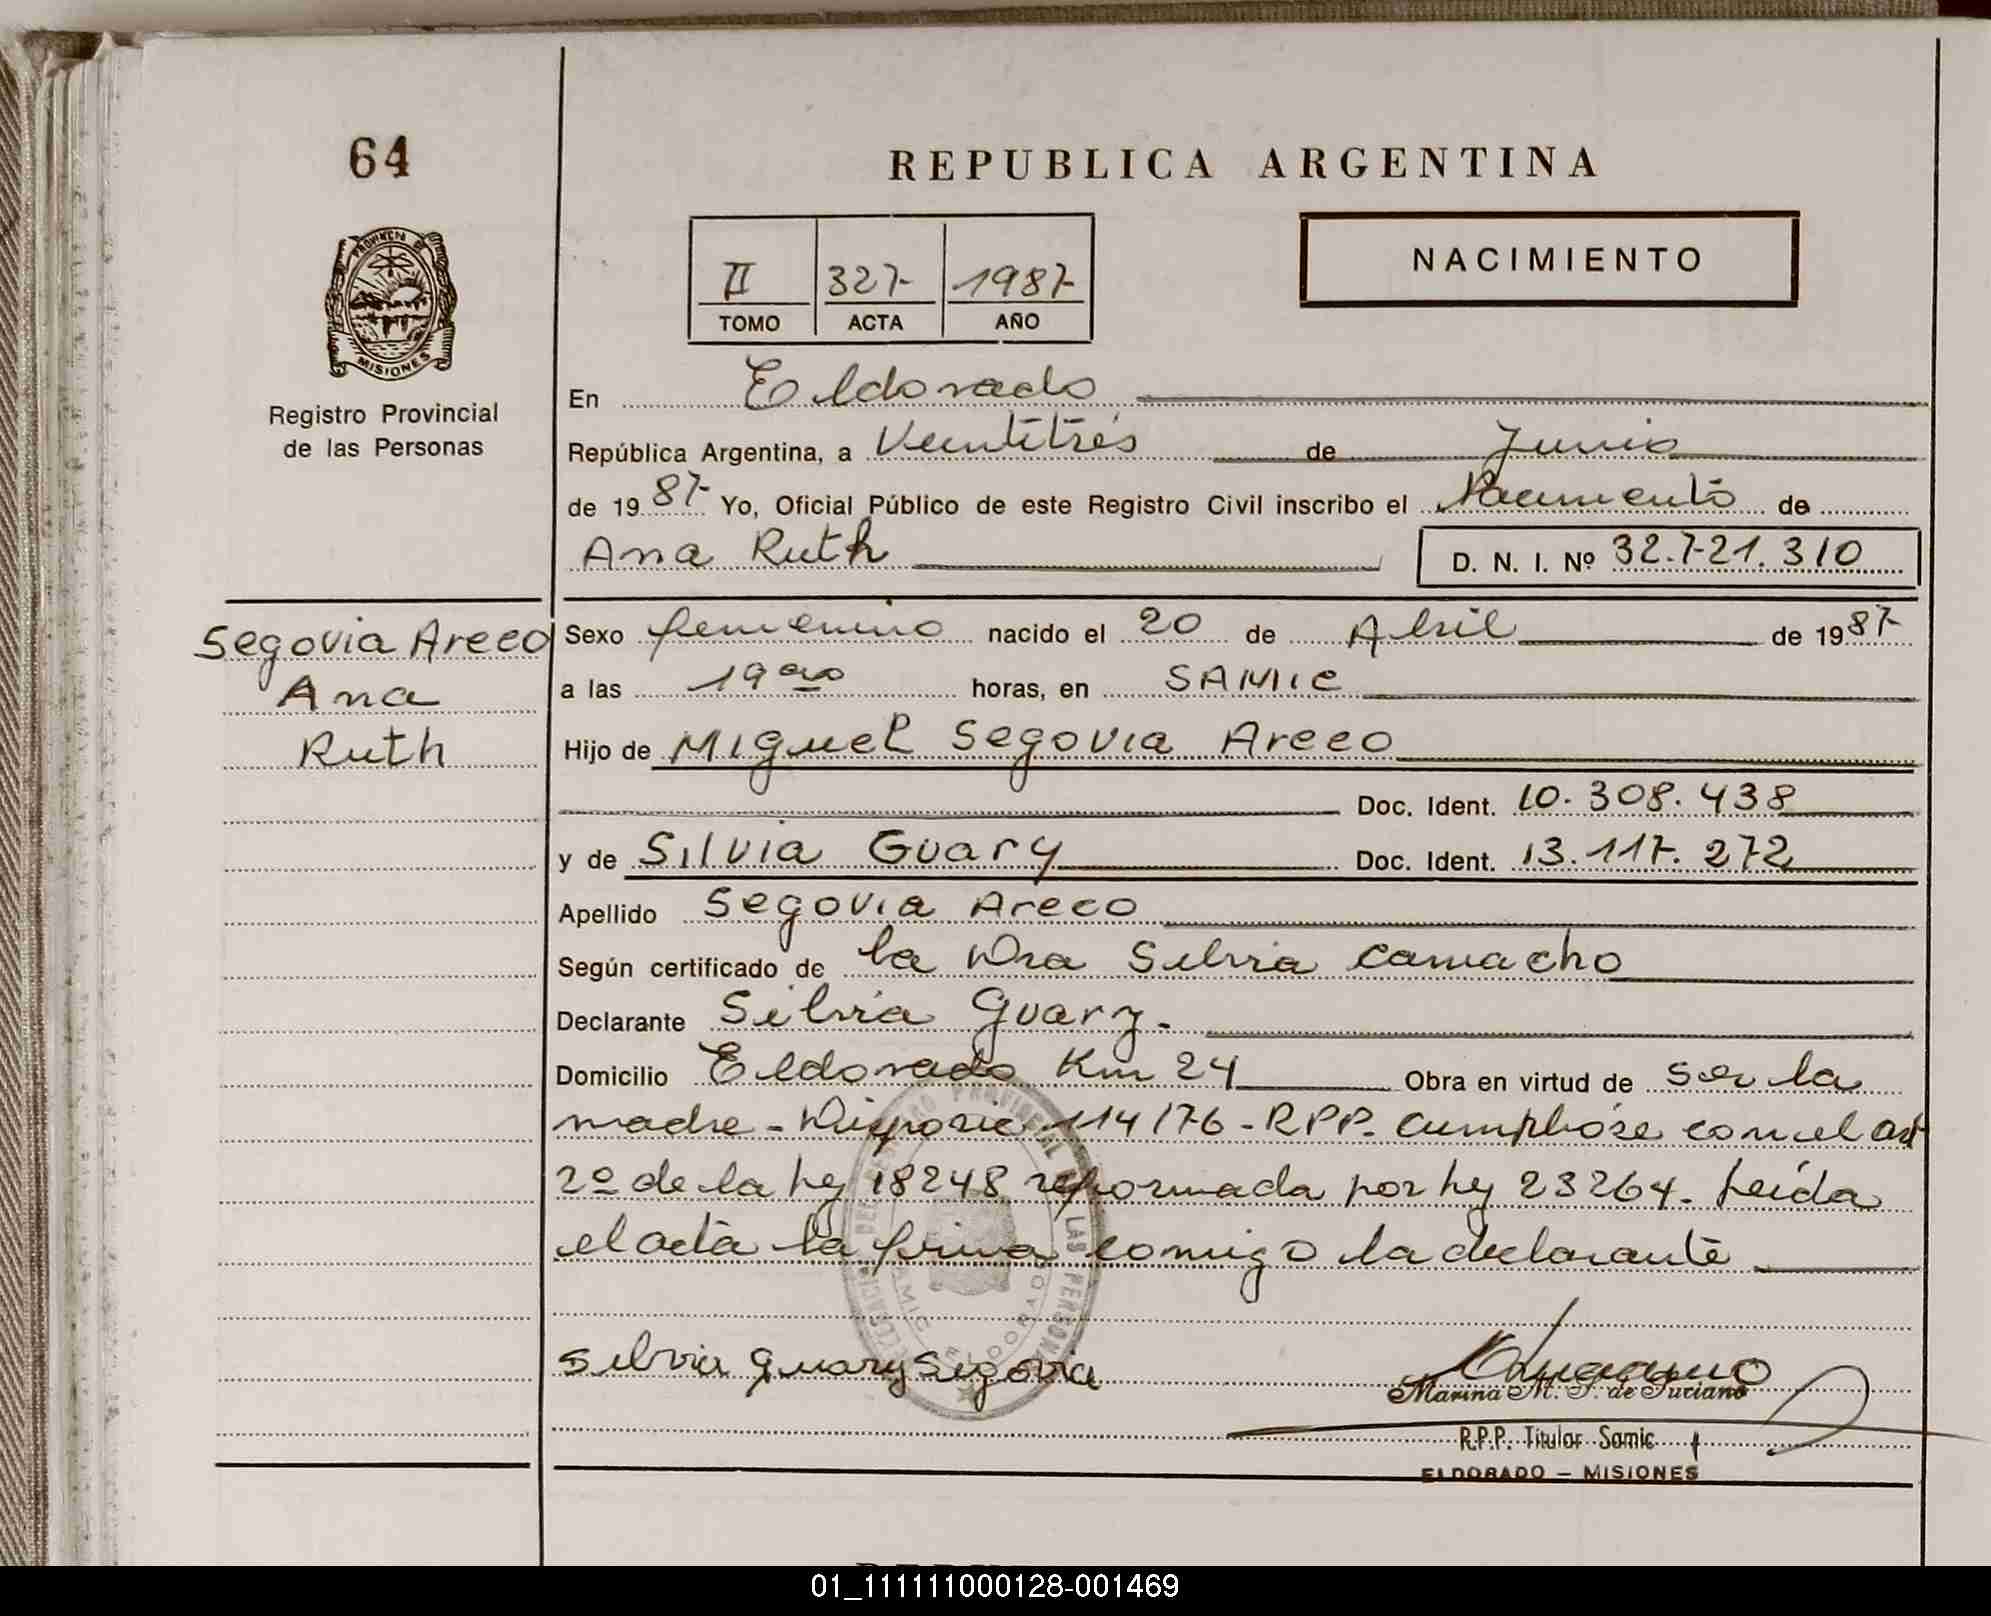 64
REPUBLICA ARGENTINA
PROVINCIA DE
MISIONES
Registro Provincial
de las Personas
II 327 1987
TOMO ACTA AÑO
NACIMIENTO
En Eldorado
República Argentina, a Veintitrés de Junio
de 1987 Yo, Oficial Público de este Registro Civil inscribo el Nacimiento de
Ana Ruth D. N. I. Nº 32.721.310
Segovia Areco
Ana
Ruth
Sexo femenino nacido el 20 de Abril de 1987
a las 19 horas, en SAMIC
Hijo de Miguel Segovia Areco
Doc. Ident. 10.308.438
y de Silvia Guary Doc. Ident. 13.117.272
Apellido Segovia Areco
Según certificado de la Dra Silvia Camacho
Declarante Silvia Guary.
Domicilio Eldorado Km 24 Obra en virtud de ser la
madre - Disposic 114/76 - RPP. Cumplióse con el art
2º de la ley 18248 reformada por ley 23264. Leída
el acta la firma conmigo la declarante
Silvia Guary Segovia
Marina M. de Luciano
R.P.P. Titular Samic
ELDORADO - MISIONES
01_111111000128-001469